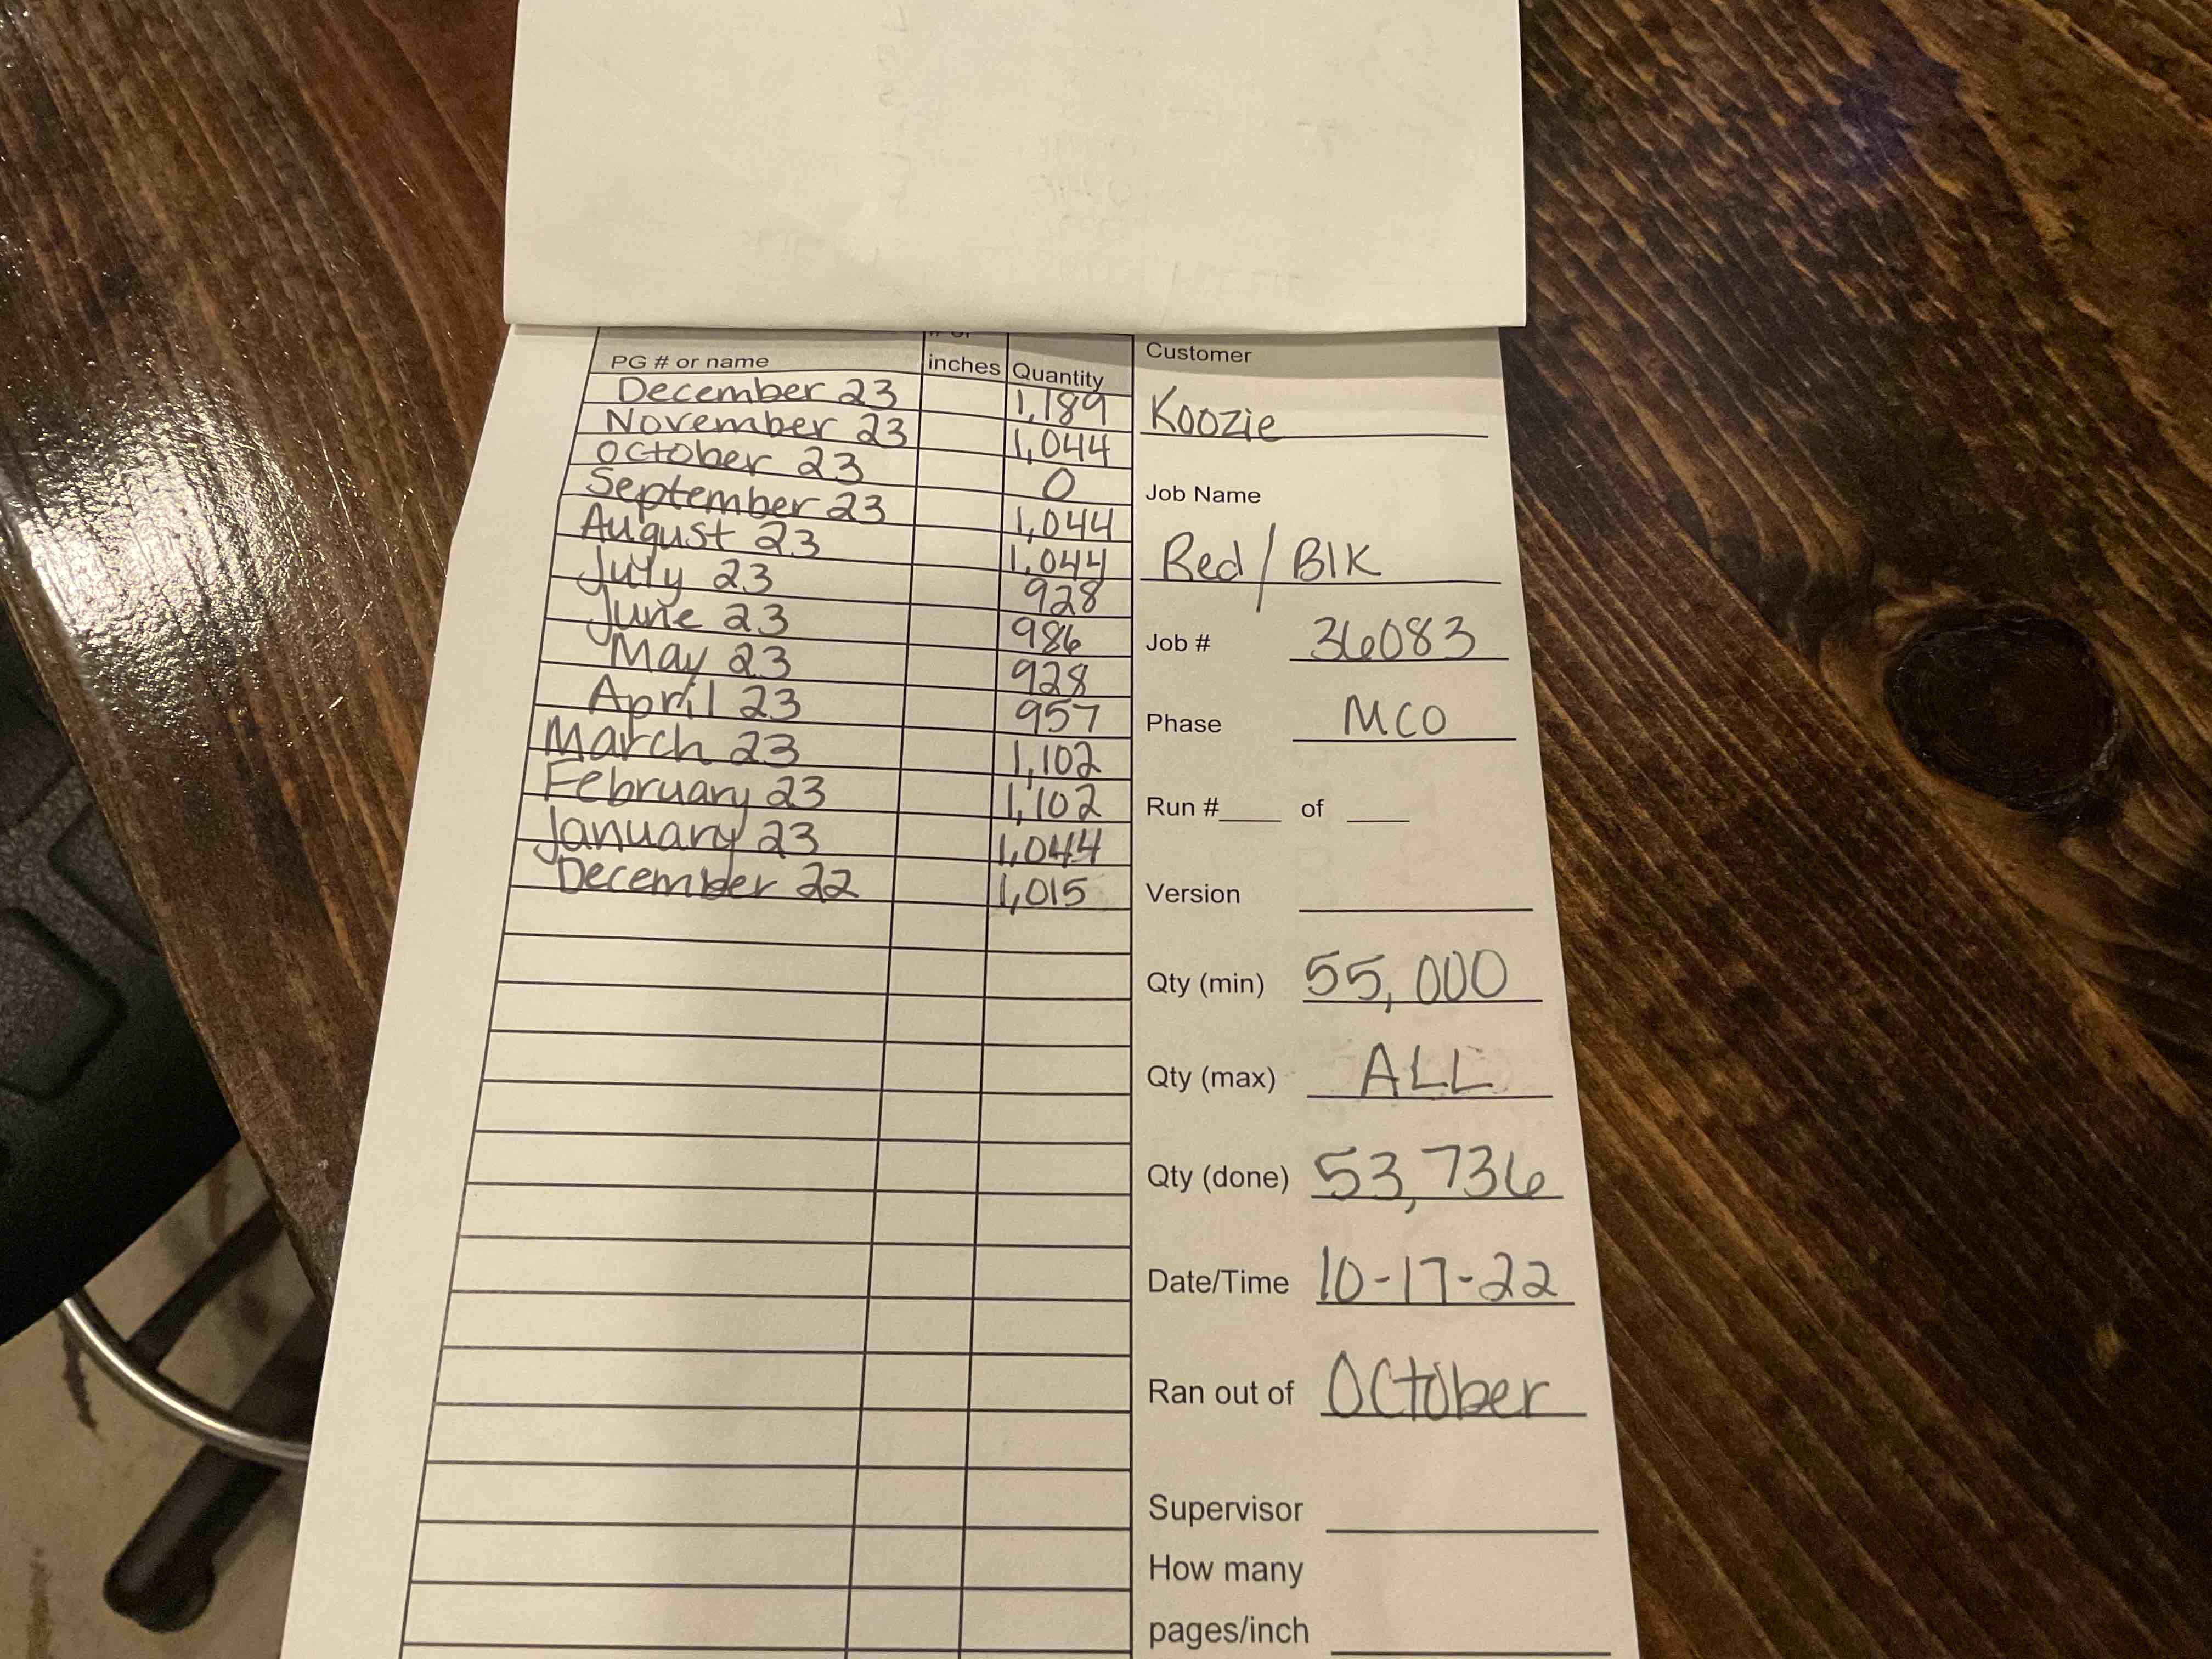 PG # or name inches Quantity
December 23 1,189
November 23 1,044
October 23 0
September 23 1,044
August 23 1,044
July 23 928
June 23 986
May 23 928
April 23 957
March 23 1,102
February 23 1,102
January 23 1,044
December 22 1,015
Customer
Koozie
Job Name
Red/Blk
Job # 36083
Phase MCO
Run #____ of ____
Version
Qty (min) 55,000
Qty (max) ALL
Qty (done) 53,736
Date/Time 10-17-22
Ran out of October
Supervisor
How many
pages/inch